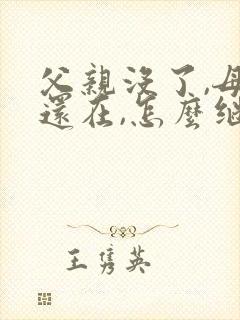 父親沒了,母
還在,怎麼繼
王隽英